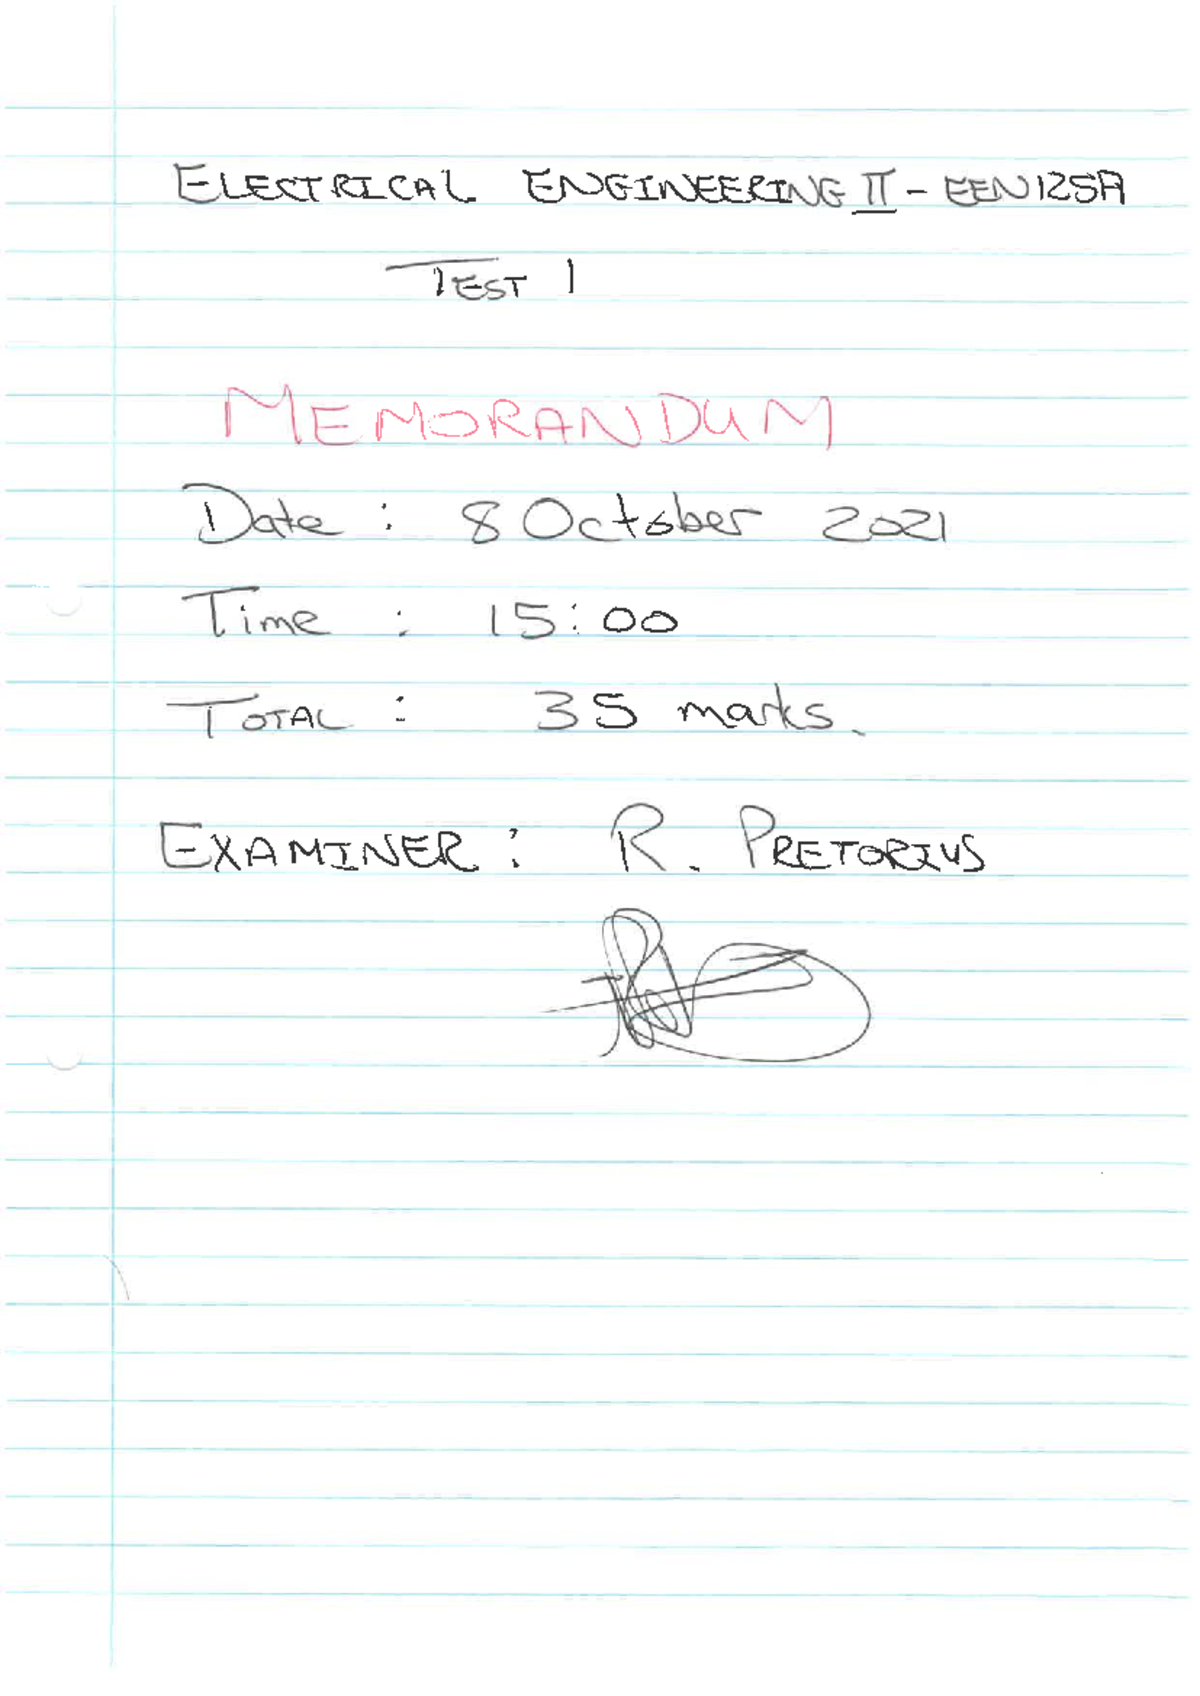 ELECTRICAL ENGINEERING II - EEN125A
TEST 1
MEMORANDUM
Date : 8 October 2021
Time : 15:00
TOTAL : 35 marks.
EXAMINER : R. PRETORIUS